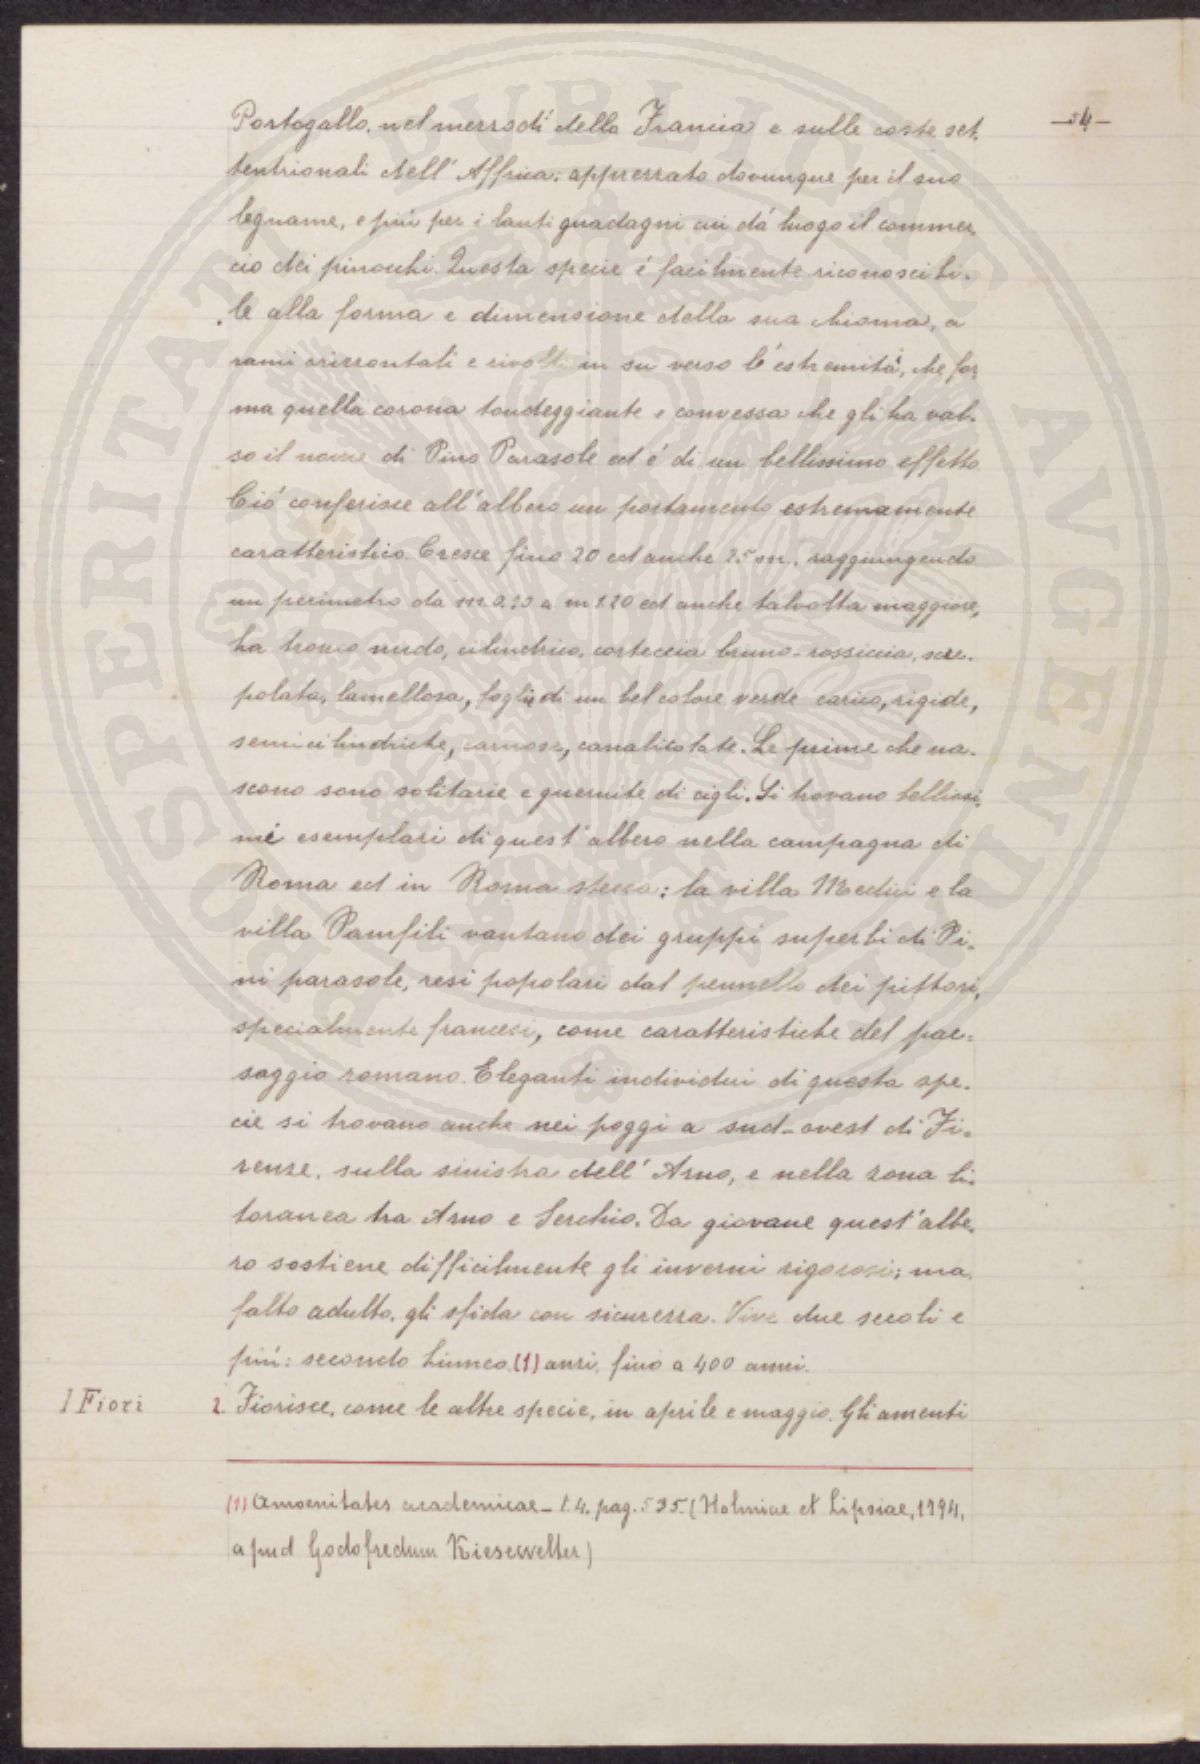 — 54 —
Portogallo, nel mezzodí della Francia e sulle coste set-
tentrionali dell'Affrica: apprezzato dovunque per il suo
legname, e piú per i lauti guadagni cui dá luogo il commer-
cio dei pinocchi. Questa specie é facilmente riconoscibi-
le alla forma e dimensione della sua chioma, a
rami orizzontali e rivolti in su verso l'estremitá, che for-
ma quella corona tondeggiante e convessa che gli ha val-
so il nome di Pino Parasole ed é di un bellissimo effetto
Ció conferisce all'albero un portamento estremamente
caratteristico. Cresce fino 20 ed anche 25 m., raggiungendo
un perimetro da m. a m 1.20 ed anche talvolta maggiore,
ha tronco nudo, cilindrico, corteccia bruno-rossiccia, scre-
polata, lamellosa, foglie di un bel colore verde carico, rigide,
semicilindriche, carnose, canalicolate. Le prime che na-
scono sono solitarie e guernite di cigli. Si trovano bellissi-
mi esemplari di quest'albero nella campagna di
Roma ed in Roma stessa: la villa Medici e la
villa Pamfili vantano dei gruppi superbi di Pi-
ni parasole, resi popolari dal pennello dei pittori,
specialmente francesi, come caratteristiche del pae-
saggio romano. Eleganti individui di questa spe-
cie si trovano anche nei poggi a sud-ovest di Fi-
renze, sulla sinistra dell'Arno, e nella zona li-
toranea tra Arno e Serchio. Da giovane quest'albe-
ro sostiene difficilmente gli inverni rigorosi; ma,
fatto adulto, gli sfida con sicurezza. Vive due secoli e
piú: secondo Linneo (1) anzi, fino a 400 anni.
I Fiori
2. Fiorisce, come le altre specie, in aprile e maggio. Gli amenti
(1) Amoenitates academicae – t. 4. pag. 535. (Holmiae et Lipsiae,
apud Godofredum Kiesewetter)
PROSPERITATI PVBLICAE AVGENDAE